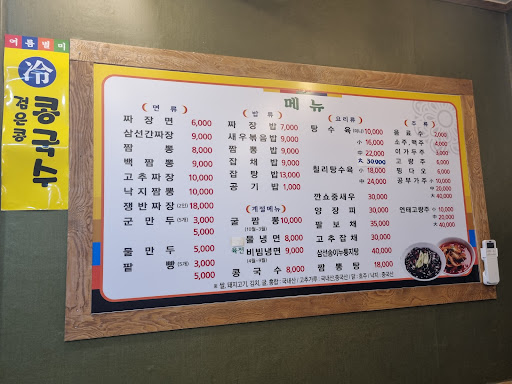 여름별미
冷
검은콩
콩국수
메뉴
( 면 류 )
짜 장 면 6,000
삼선간짜장 9,000
짬 뽕 8,000
백 짬 뽕 9,000
고추짜장 10,000
낙지짬뽕 10,000
쟁반짜장 (2인) 18,000
군 만 두 (5개) 3,000
5,000
물 만 두 5,000
팥 빵 (5개) 3,000
5,000
( 밥 류 )
짜 장 밥 7,000
새우볶음밥 9,000
짬 뽕 밥 9,000
잡 채 밥 9,000
잡 탕 밥 13,000
공 기 밥 1,000
( 계절메뉴 )
굴 짬 뽕 10,000
(10월~3월)
물 냉 면 8,000
비빔냉면 9,000
(4월~9월)
콩 국 수 8,000
( 요 리 류 )
탕 수 육 10,000
小 16,000
中 22,000
大 30,000
칠리탕수육 小 18,000
中 24,000
깐쇼중새우 30,000
양 장 피 30,000
팔 보 채 35,000
고추잡채 30,000
40,000
짬 뽕 탕 18,000
( 주 류 )
음 료 수 2,000
소주,맥주 4,000
이가두주 5,000
고 량 주 6,000
칭 따 오 6,000
공부가주 小
中 20,000
大 40,000
연태고량주 小 10,000
中 20,000
大 40,000
※ 쌀, 돼지고기, 김치, 굴, 홍합 : 국내산 / 고추가루 : 국내산,중국산 / 닭 : 호주 / 낙지 : 중국산